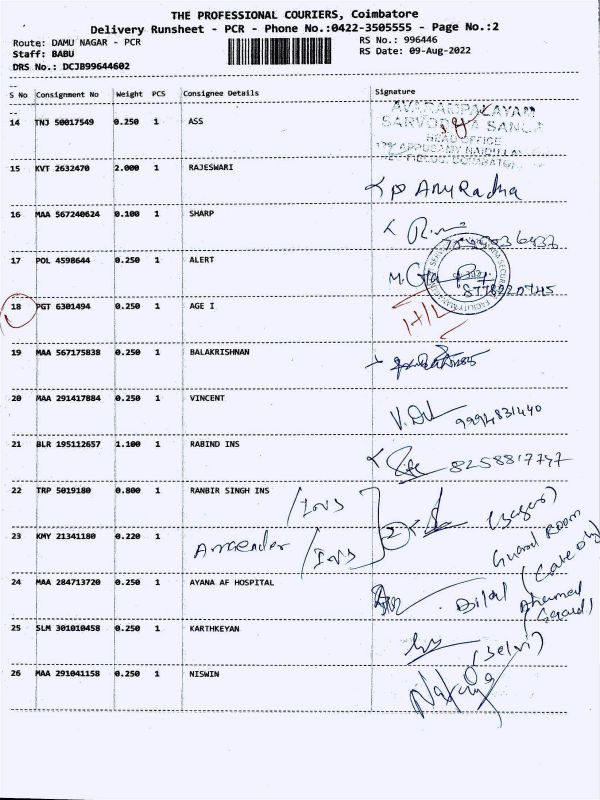 THE PROFESSIONAL COURIERS, Coimbatore
Delivery Runsheet - PCR - Phone No.:0422-3505555 - Page No.:2
Route: DAMU NAGAR - PCR
RS No.: 996446
Staff: BABU
RS Date: 09-Aug-2022
DRS No.: DCJB99644602
S No Consignment No Weight PCS Consignee Details Signature
14 TNJ 50017549 0.250 1 ASS
AVARAMPALAYAM
SARVODAYA SANGA
HEAD OFFICE
15 KVT 2632470 2.000 1 RAJESWARI
Anuradha
16 MAA 567240624 0.100 1 SHARP
17 POL 4598644 0.250 1 ALERT
8778220745
18 PGT 6301494 0.250 1 AGE I
H/L
19 MAA 567175838 0.250 1 BALAKRISHNAN
20 MAA 291417884 0.250 1 VINCENT
9994831440
21 BLR 195112657 1.100 1 RABIND INS
8258817747
22 TRP 5019180 0.800 1 RANBIR SINGH INS
/ INS
23 KMY 21341180 0.220 1
/ INS
2
Guard Room
24 MAA 284713720 0.250 1 AYANA AF HOSPITAL
Bilal
25 SLM 301010458 0.250 1 KARTHKEYAN
(Selvi)
26 MAA 291041158 0.250 1 NISWIN